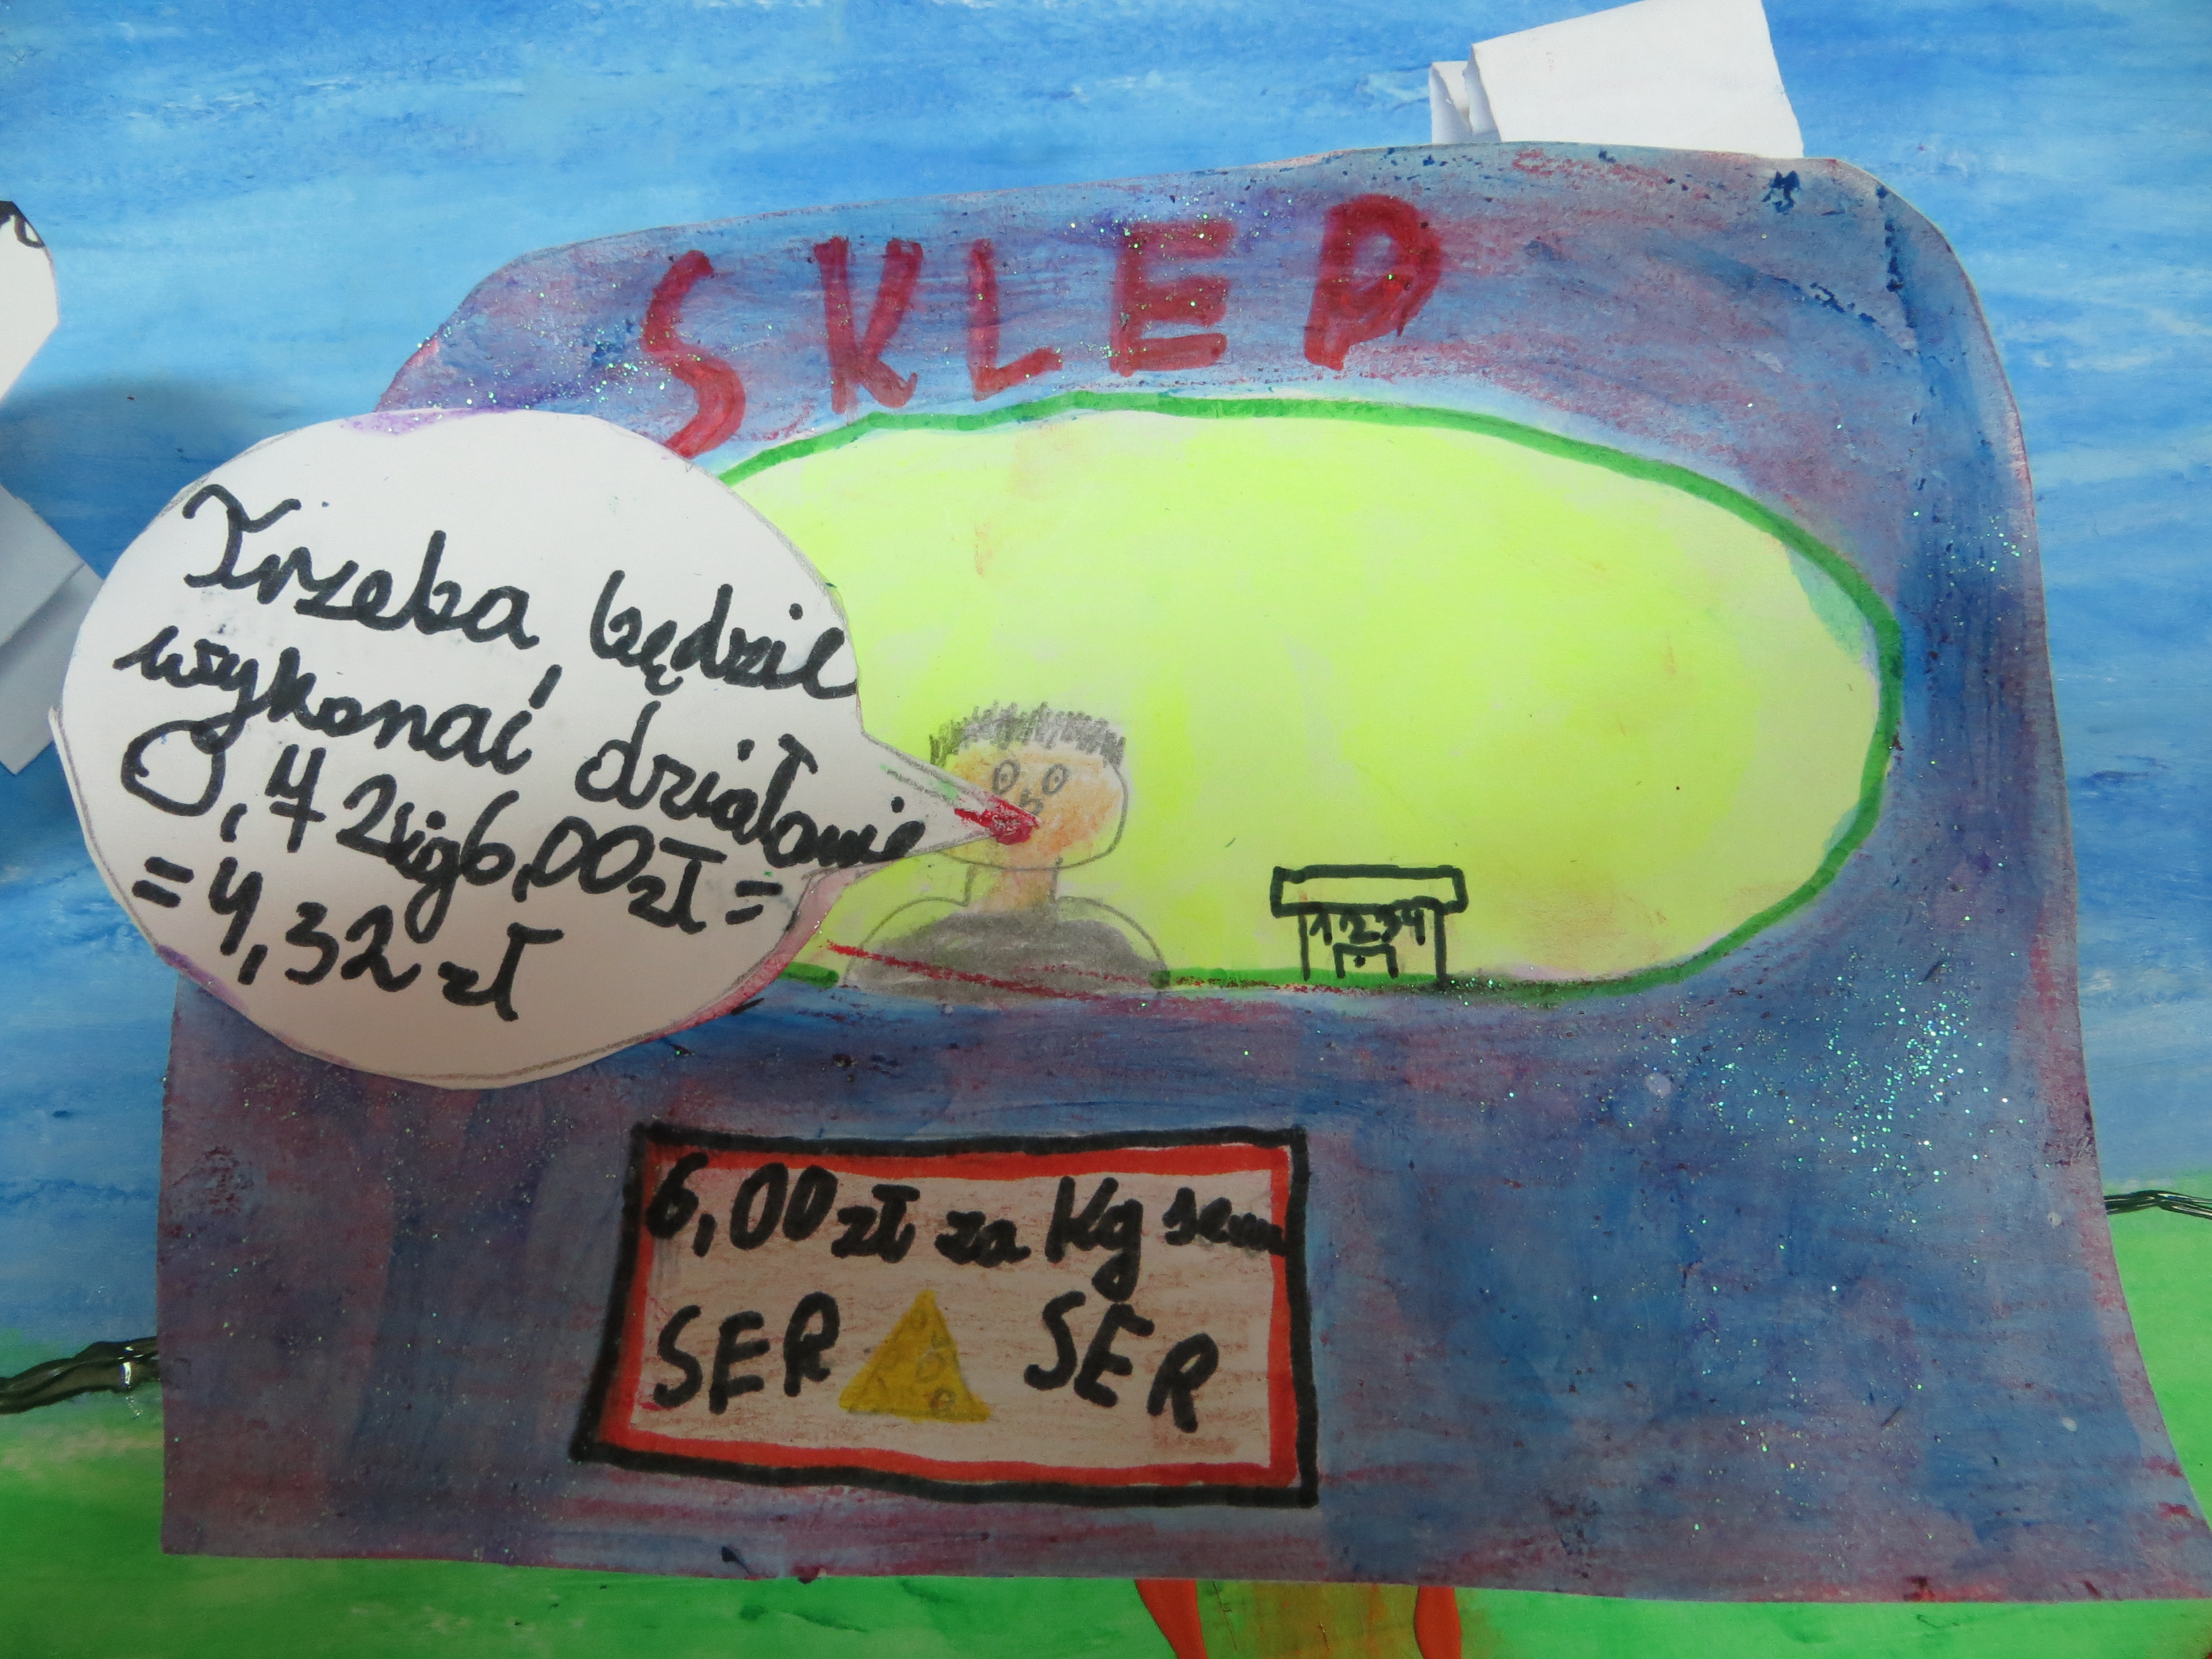 SKLEP
Trzeba będzie
wykonać działanie
0,72kg6,00zł=
=4,32 zł
1234
6,00 zł za kg
SER SER